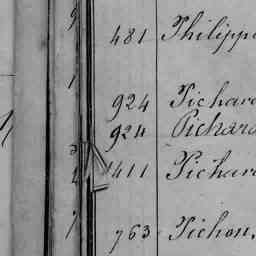 9
481 Philipp
1
924 Pichar
924 Pichar
3
2 1411 Pichar
7
763 Pichon,